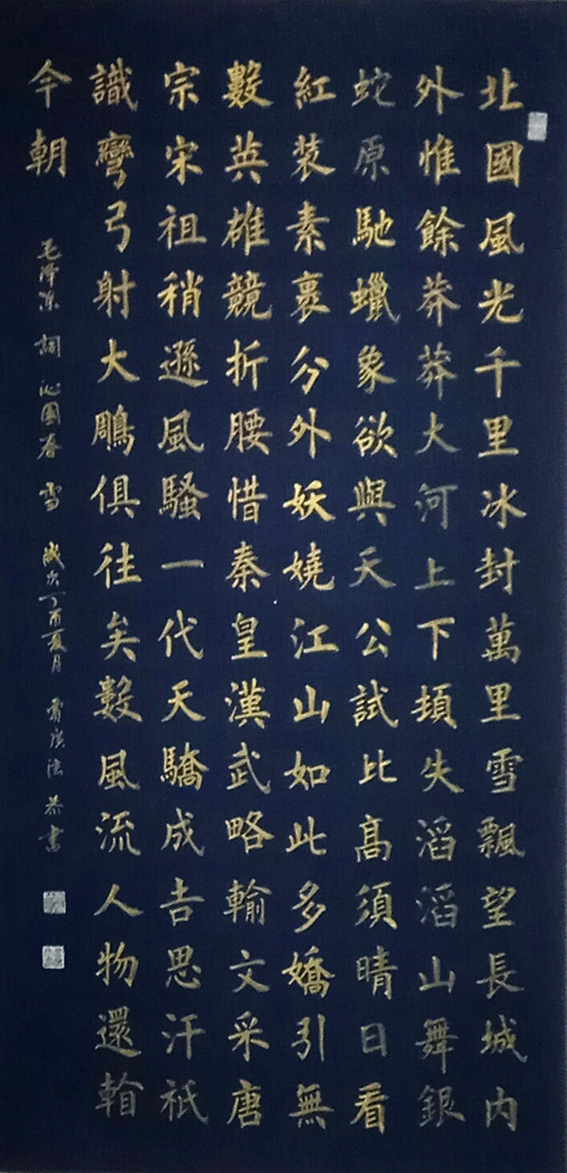 北國風光千里冰封萬里雪飄望長城内
外惟餘莽莽大河上下頓失滔滔山舞銀
蛇原馳蠟象欲與天公試比髙須晴日看
紅裝素裹分外妖嬈江山如此多嬌引無
數英雄競折腰惜秦皇漢武略輸文采唐
宗宋祖稍遜風騷一代天驕成吉思汗祗
識彎弓射大鵰俱往矣數風流人物還
今朝
毛澤東詞沁園春雪 歲次丁酉夏月 恭書